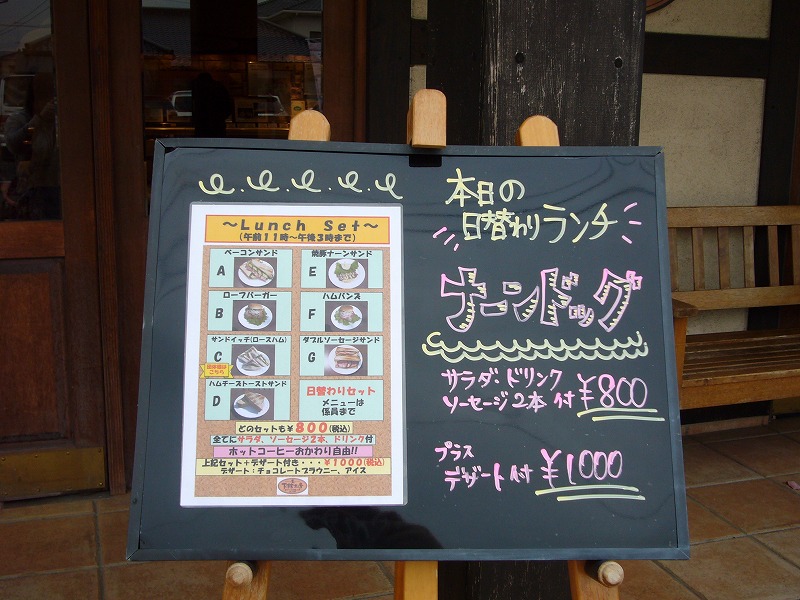 ～Lunch Set～
(午前11時～午後3時まで)
ベーコンサンド
A
ローフバーガー
B
サンドイッチ(ロースハム)
C
こちら
ハムチーズトーストサンド
D
熊豚ナーンサンド
E
ハムバンズ
F
ダブルソーセージサンド
G
日替わりセット
メニューは
係員まで
どのセットも¥800(税込)
全てにサラダ、ソーセージ2本、ドリンク付
ホットコーヒーおかわり自由!!
上記セット+デザート付き・・・¥1000(税込)
デザート:チョコレートブラウニー、アイス
本日の
日替わりランチ
ナーンドッグ
サラダ・ドリンク
ソーセージ2本付 ¥800
プラス
デザート付 ¥1000